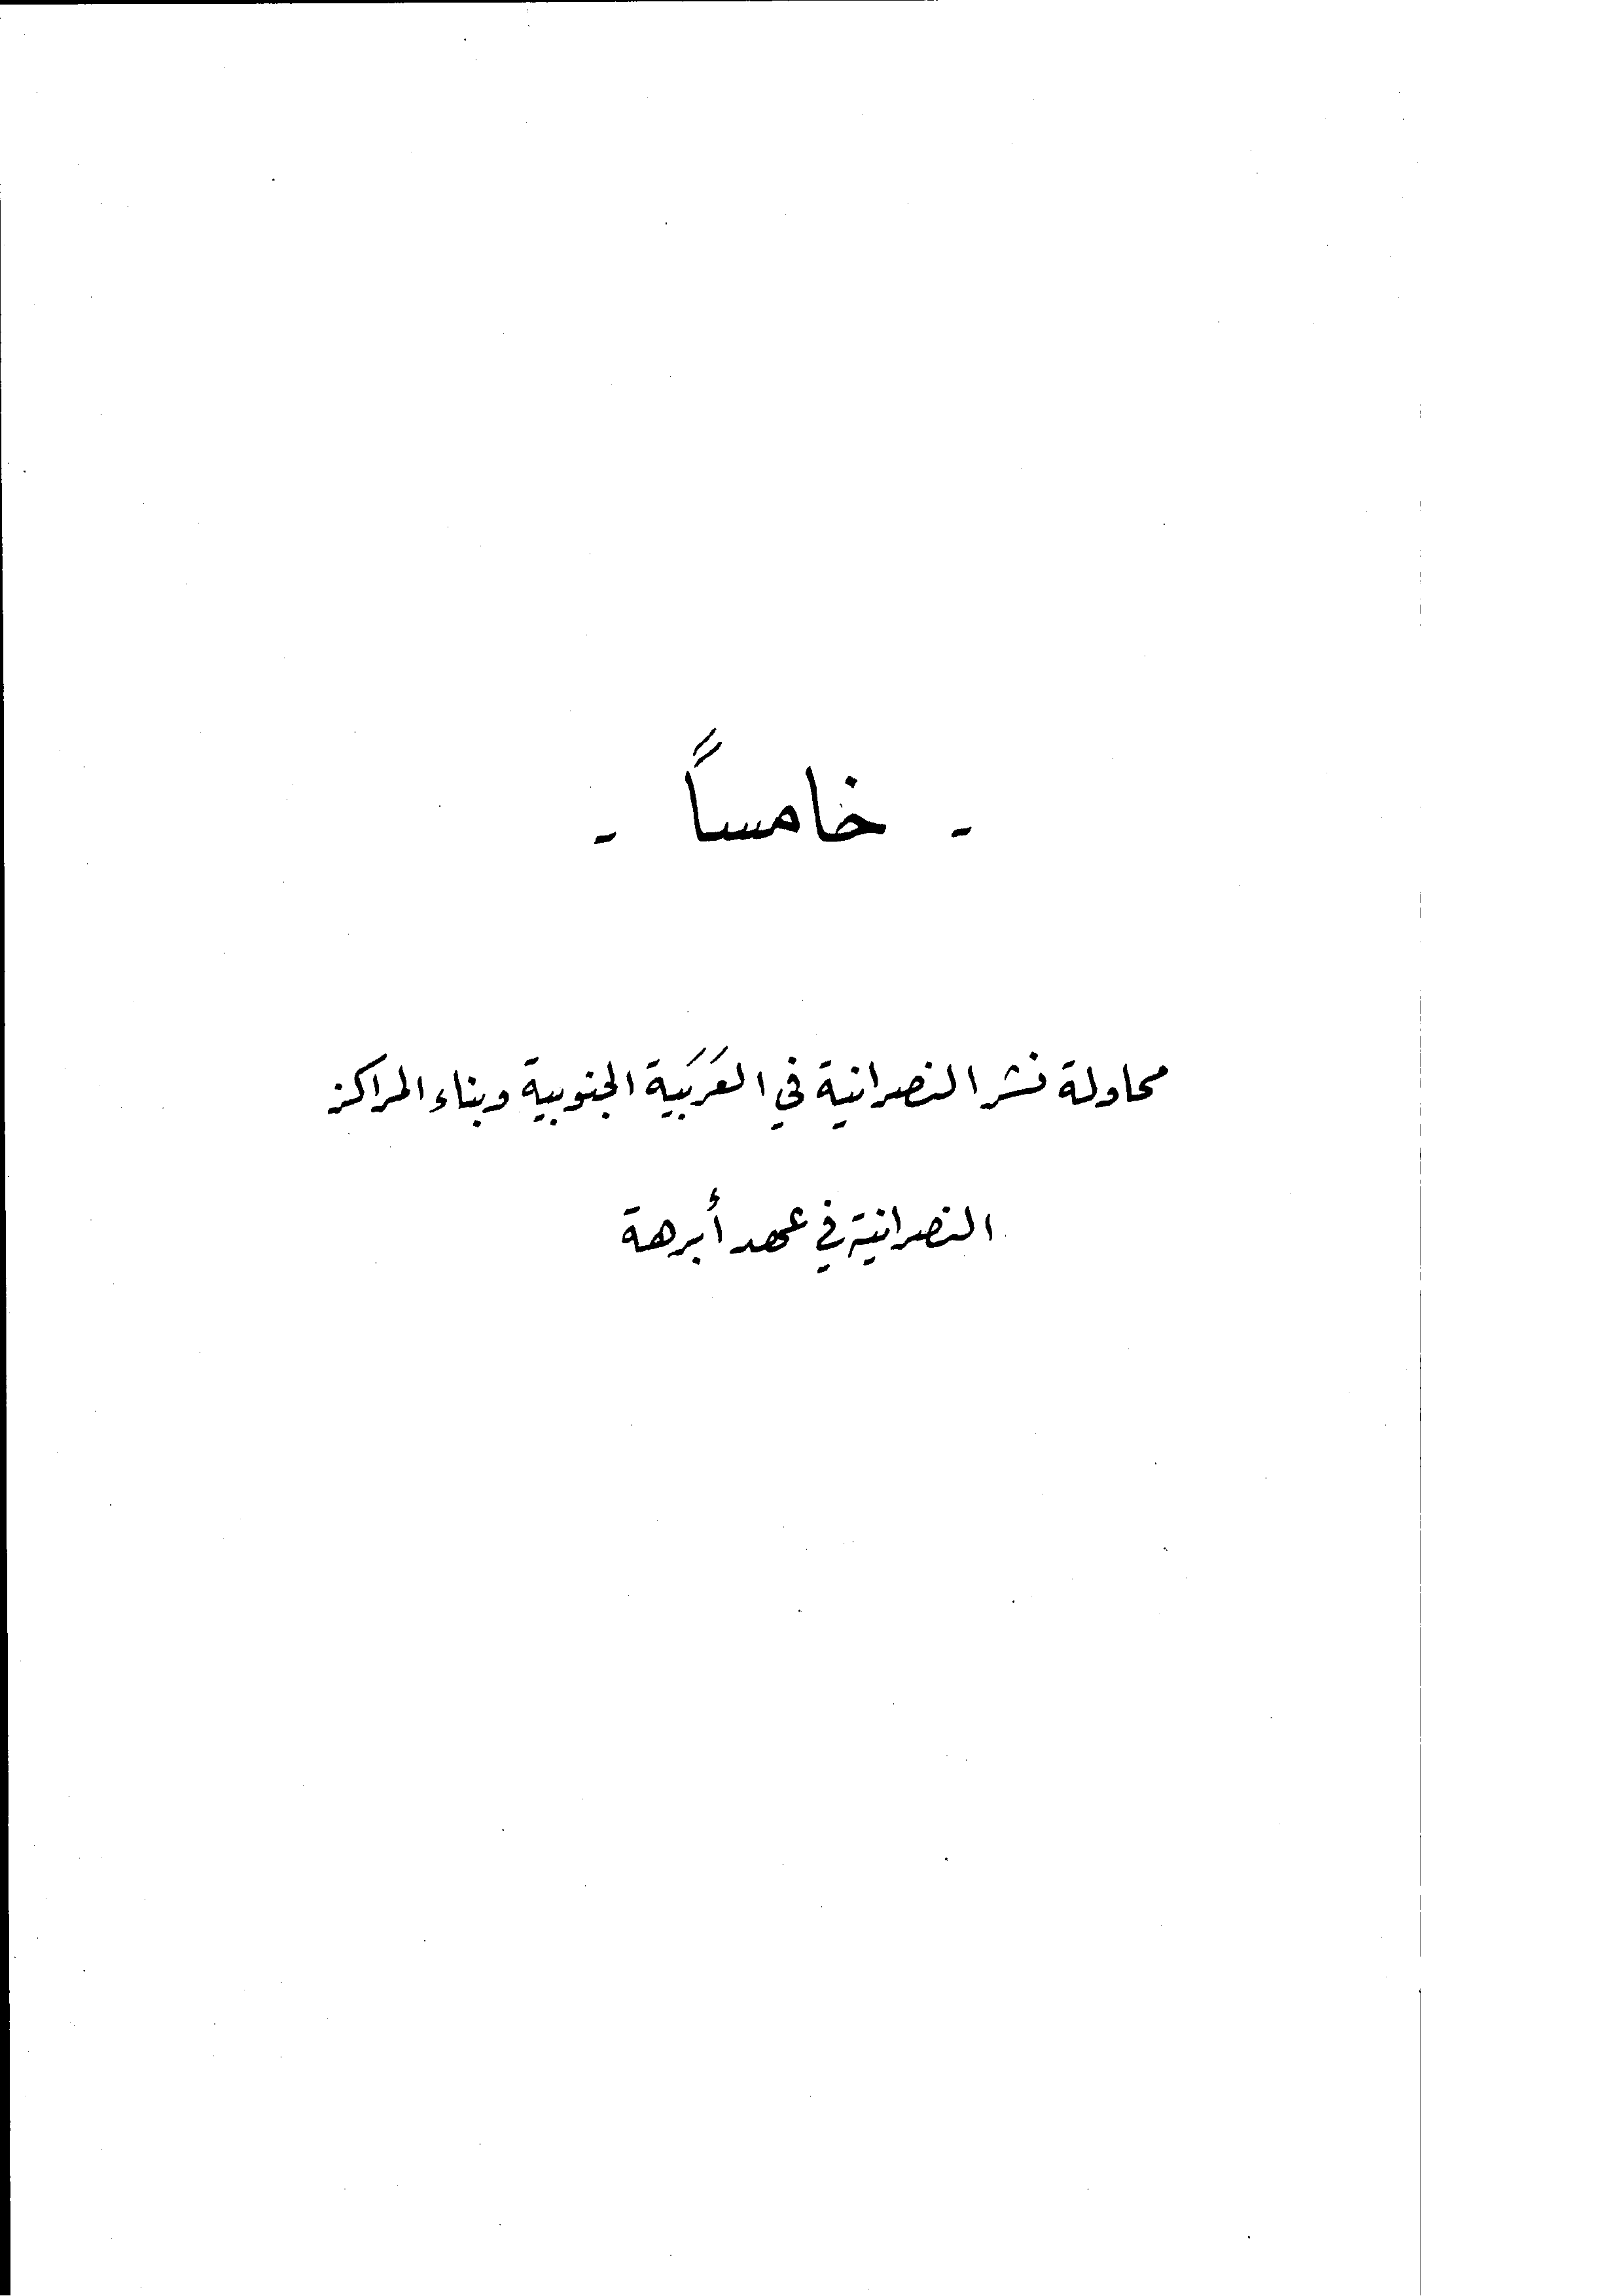 - خامساً -
محاولة نشر النصرانية في العَرَبَية الجنوبية وبناء المراكز
النصرانية في عهد أبرهة